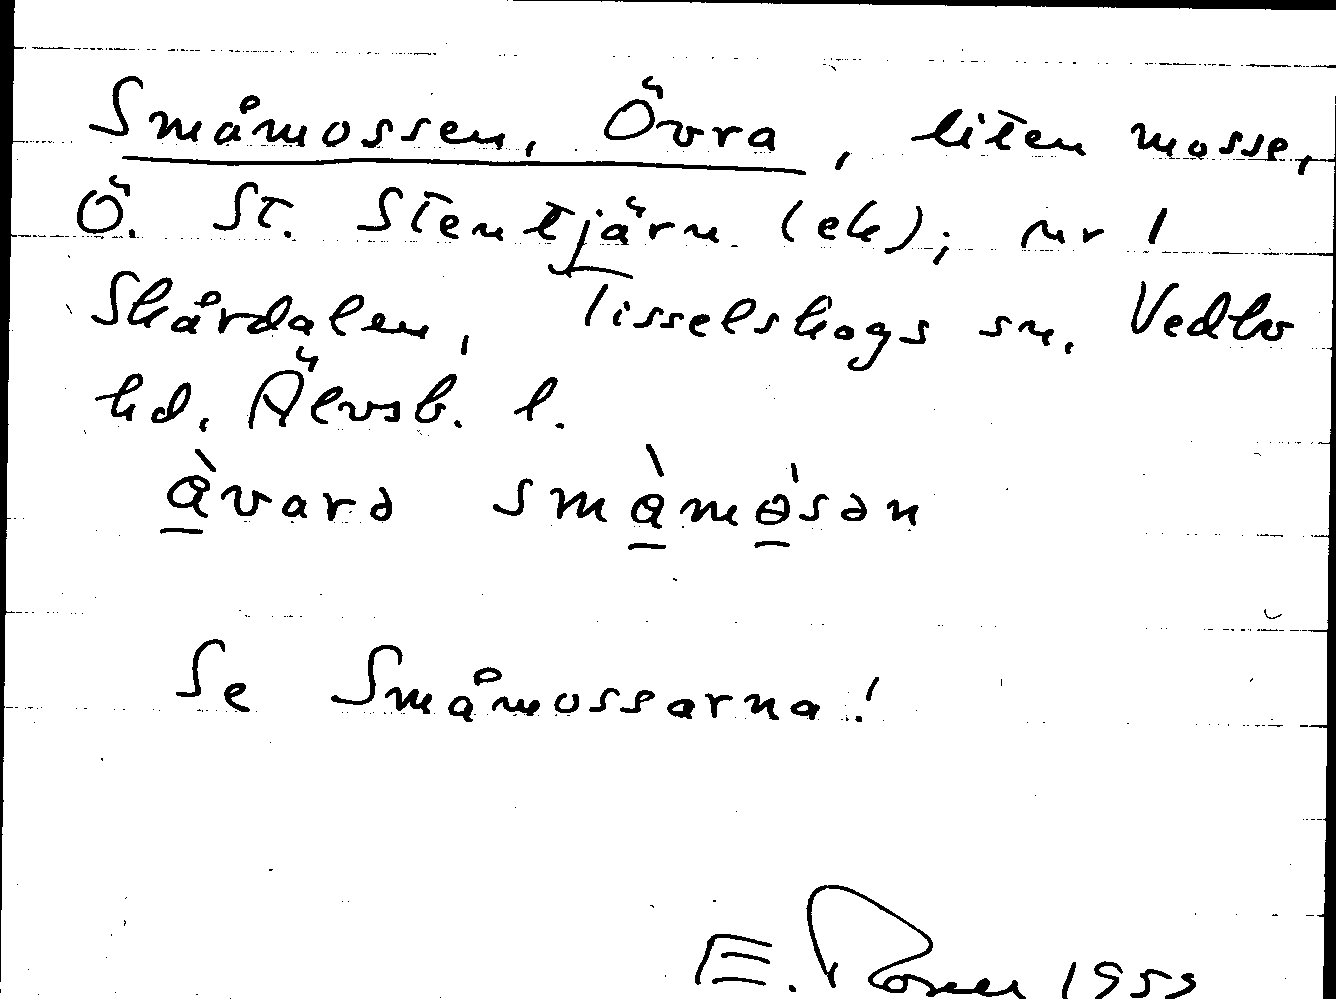 Småmossen, Övra, liten mosse,
Ö. St. Stentjärn (ek); nr 1
Skårdalen, Tisselskogs sn, Vedbo
hd. Älvsb. l.
àvarə smàmòsən
Se Småmossarna!
E. Rosell 1959